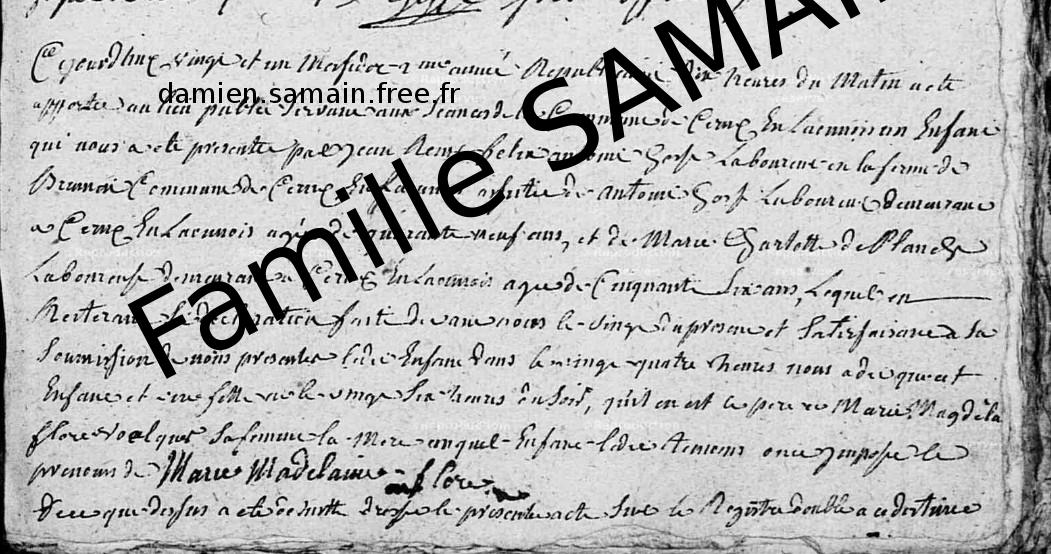 Ce jourd'huy vingt et un Messidor 2me année Republicaine dix heures du Matin a eté
apportée au lieu public servant aux Seances de la Commune de Cerny En Laonnois un Enfant
qui nous a eté presenté par Jean Remy felix antoine Laboureur en la ferme de
Commune de Cerny En Laonnois assisté de antoine Laboureur demeurant
a Cerny En Laonnois agé de quarante neuf ans, et de Marie Charlotte de Planck
Laboureuse demeurant a Cerny En Laonnois agée de Cinquante six ans, Lequel en
Reiterant Sa declaration faite devant nous le vingt du present et satisfaisant a sa
Soumission de nous presenter ledit Enfant dans le vingt quatre heures nous a dit que cet
Enfant et une fille née le vingt Six heures du Soir, qu'il en est le pere et Marie Magdela
flore sa femme la Mere auquel Enfant ledit temoins ont imposé le
prenoms de Marie Madelaine flore
De ce que dessus a eté de suitte dressé le present acte Sur le Registre double a ce destinée
Famille SAMAIN
damien.samain.free.fr